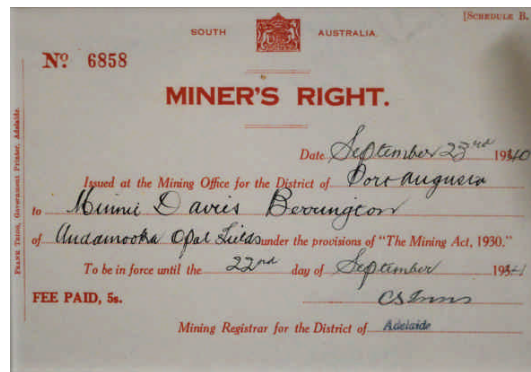 [SCHEDULE B.
SOUTH AUSTRALIA.
No 6858
MINER'S RIGHT.
Date September 23rd 1940
Issued at the Mining Office for the District of Port Augusta
to Minnie Davies Berrington
of Andamooka Opal Fields under the provisions of "The Mining Act, 1930."
To be in force until the 22nd day of September 1941
FEE PAID, 5s.
Mining Registrar for the District of Adelaide
FRANK TRIGG, Government Printer, Adelaide.